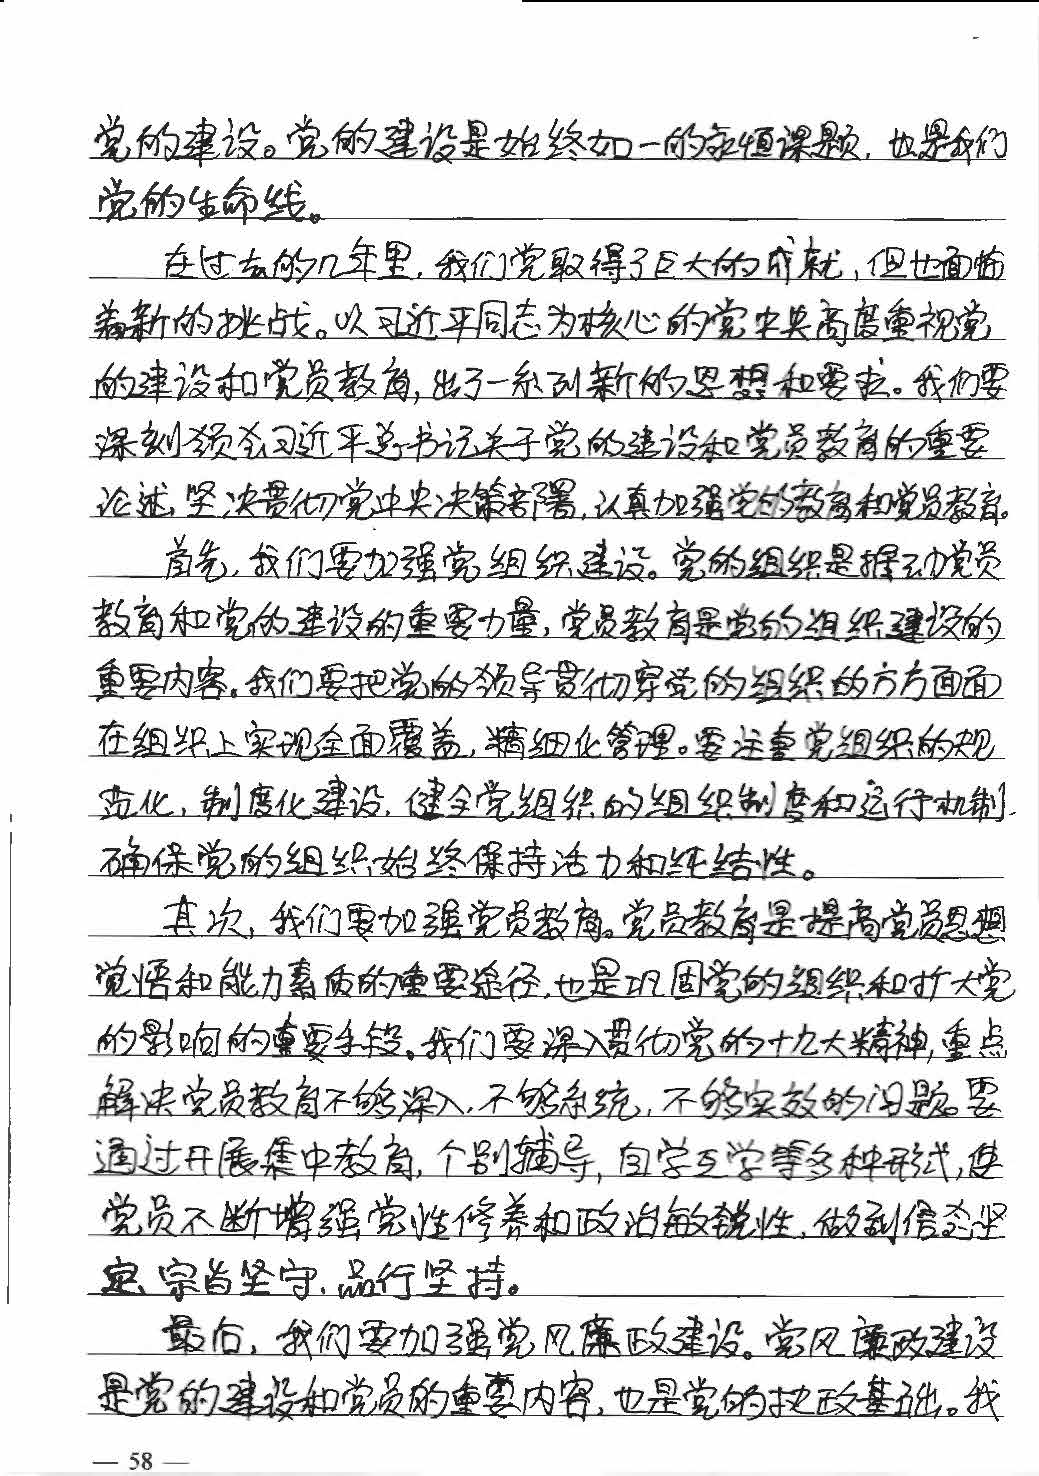 党的建设。党的建设是始终如一的永恒课题，也是我们
党的生命线。
在过去的几年里，我们党取得了巨大的成就，但也面临
着新的挑战。以习近平同志为核心的党中央高度重视党
的建设和党员教育，出了一系列新的思想和要求。我们要
深刻领会习近平总书记关于党的建设和党员教育的重要
论述，坚决贯彻党中央决策部署，认真加强党的教育和党员教育。
首先，我们要加强党组织建设。党的组织是推动党员
教育和党的建设的重要力量，党员教育是党的组织建设的
重要内容。我们要把党的领导贯彻穿党的组织的方方面面
在组织上实现全面覆盖，精细化管理。要注重党组织的规
范化，制度化建设，健全党组织的组织制度和运行机制，
确保党的组织始终保持活力和纯结性。
其次，我们要加强党员教育。党员教育是提高党员思想
觉悟和能力素质的重要途径，也是巩固党的组织和扩大党
的影响的重要手段。我们要深入贯彻党的十九大精神，重点
解决党员教育不够深入，不够系统，不够实效的问题。要
通过开展集中教育，个别辅导，自学互学等多种形式，使
党员不断增强党性修养和政治敏锐性，做到信念坚
定、宗旨坚守，品行坚持。
最后，我们要加强党风廉政建设。党风廉政建设
是党的建设和党员的重要内容，也是党的执政基础。我
— 58 —